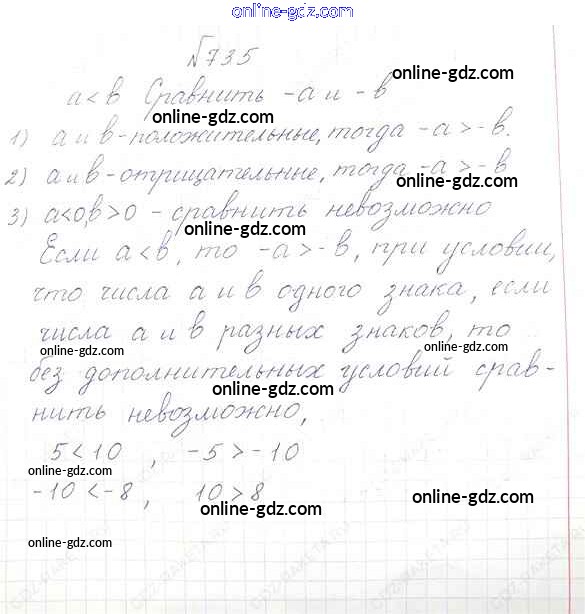 online-gdz.com
№735
online-gdz.com
a<b Сравнить -a и -b
online-gdz.com
1) a и b-положительные, тогда -a>-b.
online-gdz.com
2) a и b-отрицательные, тогда -a>-b
online-gdz.com
3) a<0,b>0 - сравнить невозможно
Если a<b, то -a>-b, при условии,
online-gdz.com
что числа a и b одного знака, если
числа a и b разных знаков, то
online-gdz.com online-gdz.com
без дополнительных условий срав-
online-gdz.com
нить невозможно,
5<10 , -5>-10
online-gdz.com
-10<-8, 10>8
online-gdz.com
online-gdz.com
online-gdz.com